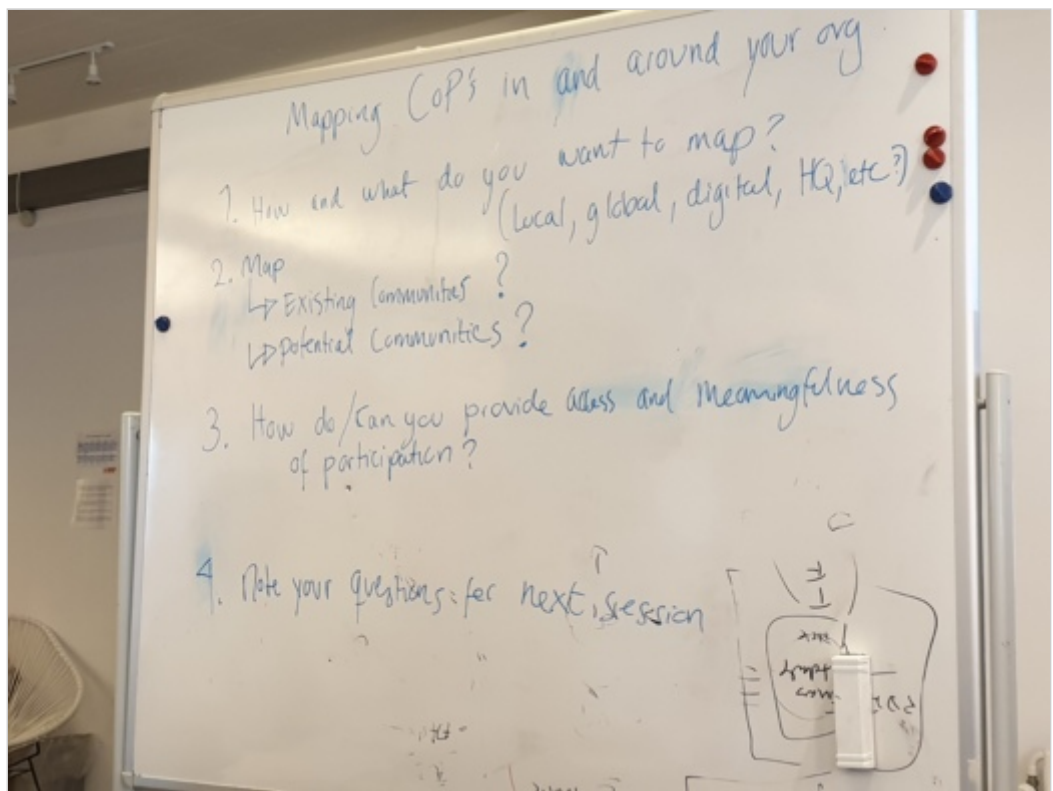 Mapping CoP's in and around your org.
1. How and what do you want to map?
(Local, global, digital, HQ, etc?)
2. Map
↳ Existing Communities ?
↳ potential Communities ?
3. How do/can you provide access and meaningfulness
of participation?
4. Note your questions for next session